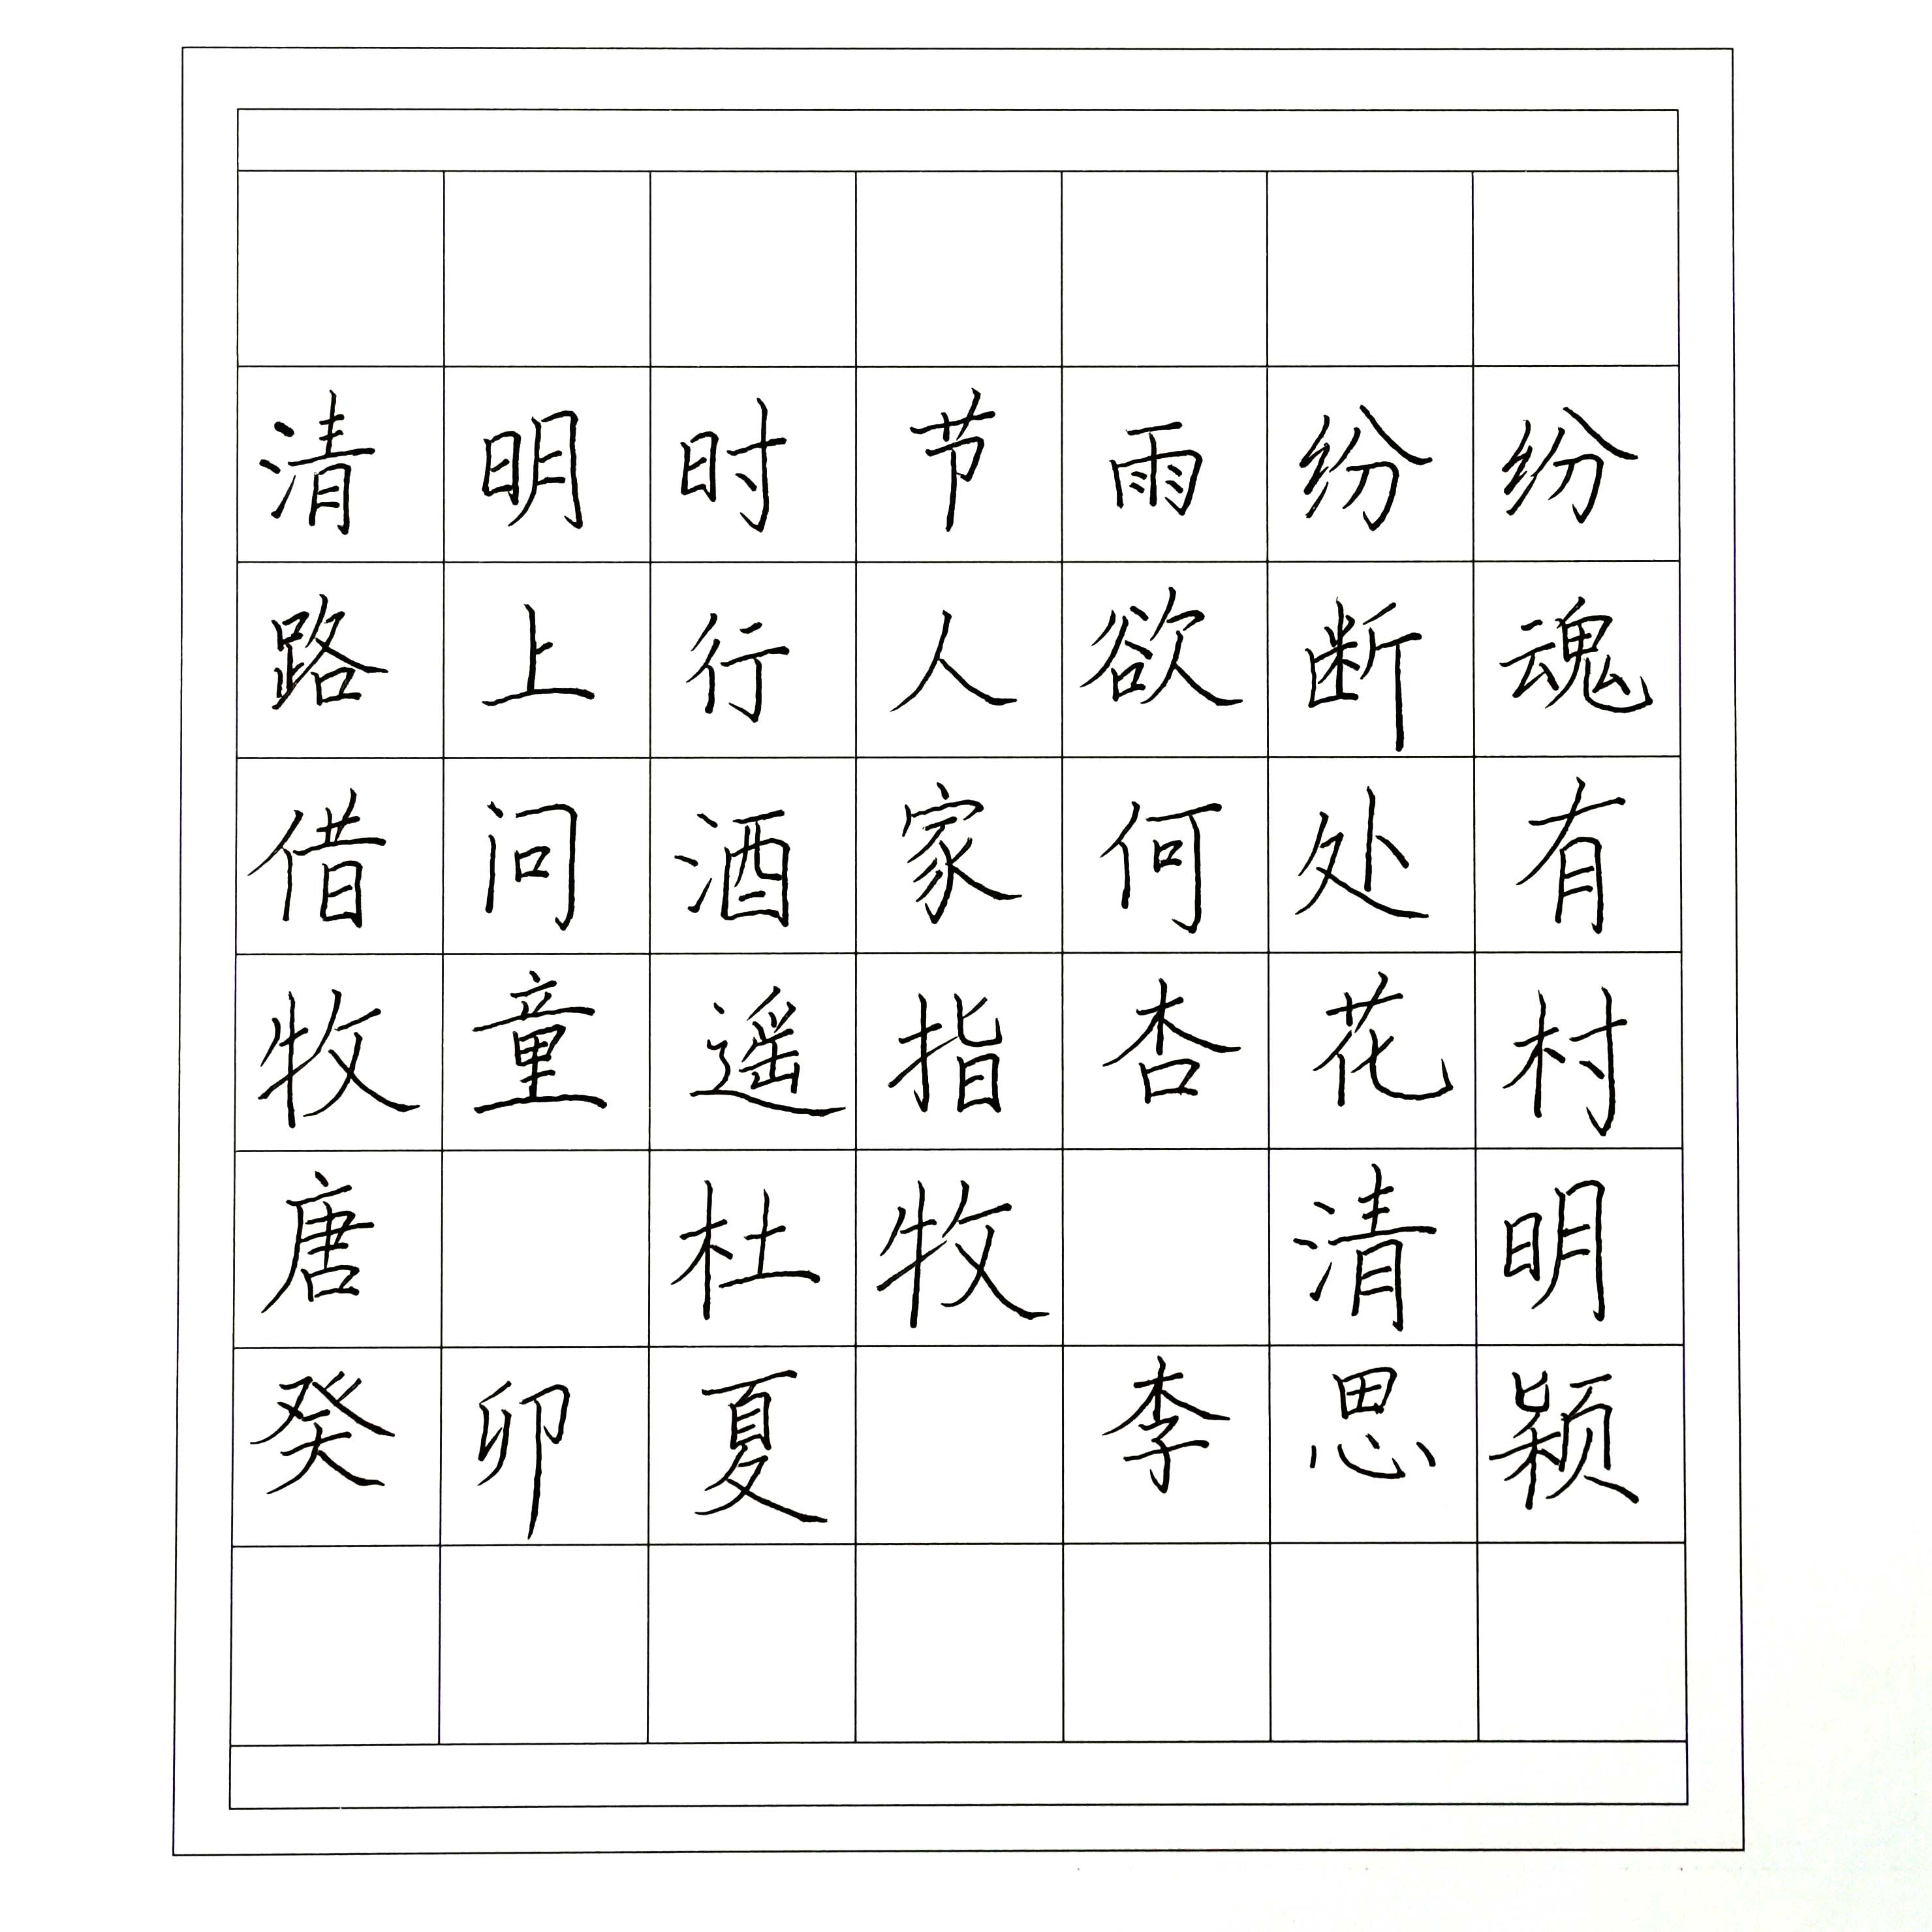 清明时节雨纷纷
路上行人欲断魂
借问酒家何处有
牧童遥指杏花村
唐 杜牧 清明
癸卯夏 李思颖